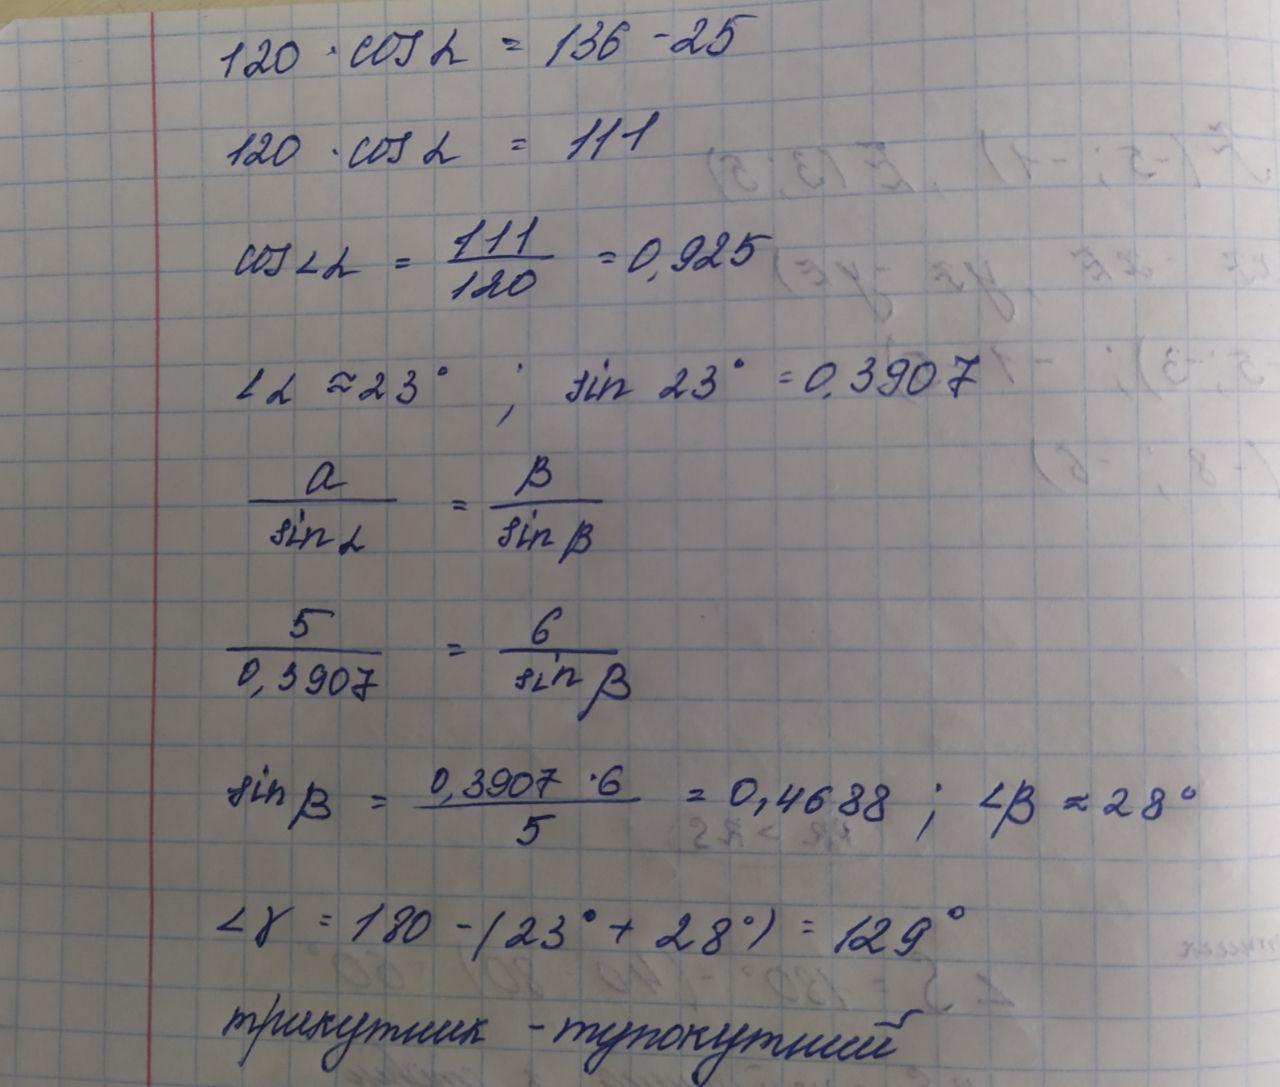 120 · cos α = 136 - 25
120 · cos α = 111
cos ∠α = 111/120 = 0,925
∠α ≈ 23° ; sin 23° = 0,3907
a/sin α = β/sin β
5/0,3907 = 6/sin β
sin β = 0,3907 · 6/5 = 0,4688 ; ∠β ≈ 28°
∠γ = 180 - (23° + 28°) = 129°
трикутник - тупокутний